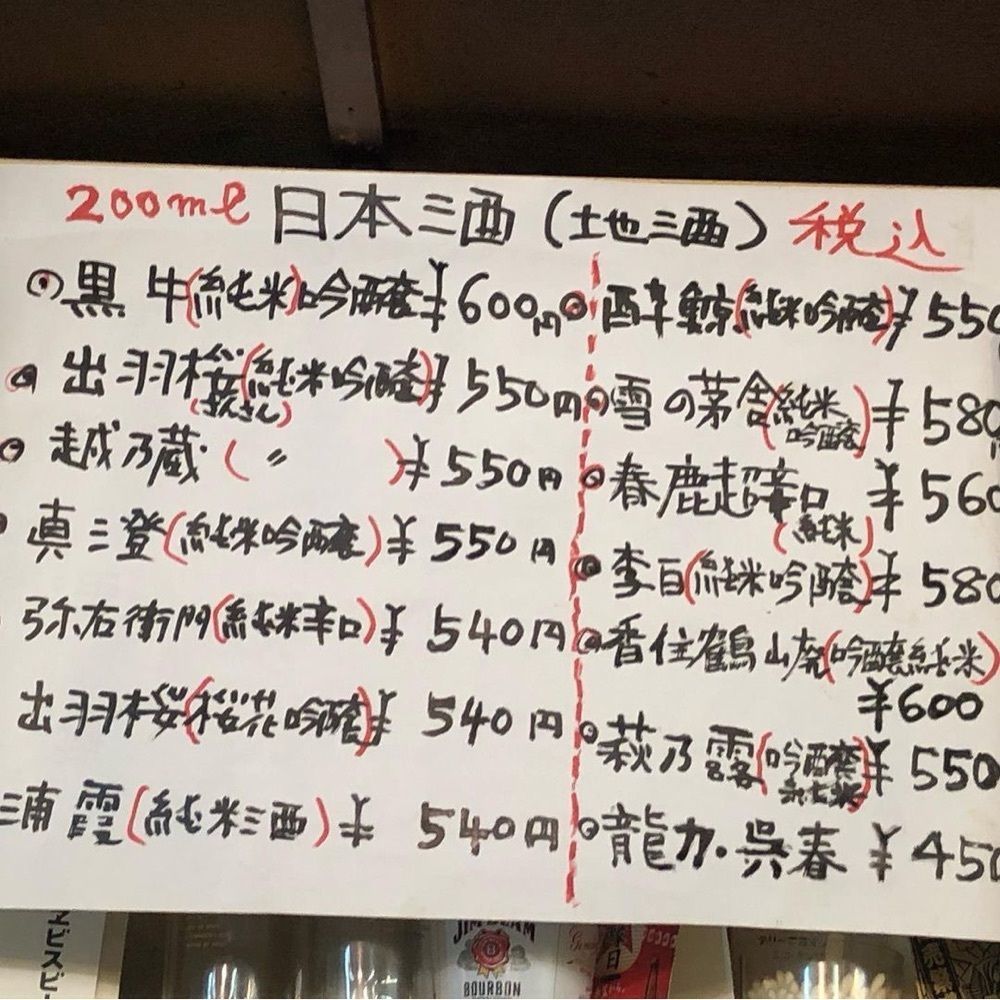 200ml 日本酒(地酒) 税込
黒牛(純米)吟醸¥600円
出羽桜(純米吟醸)¥550円
越乃蔵(〃)¥550円
真三登(純米吟醸)¥550円
弥右衛門(純米辛口)¥540円
出羽桜(桜花吟醸)¥540円
浦霞(純米酒)¥540円
酔鯨(純米吟醸)¥550
雪の茅舎(純米吟醸)¥580
春鹿超辛口(純米)¥560
李白(純米吟醸)¥580
香住鶴山廃(吟醸純米)
¥600
萩乃露(吟醸純米)¥550
龍力・呉春 ¥450
JIM BEAM
BOURBON